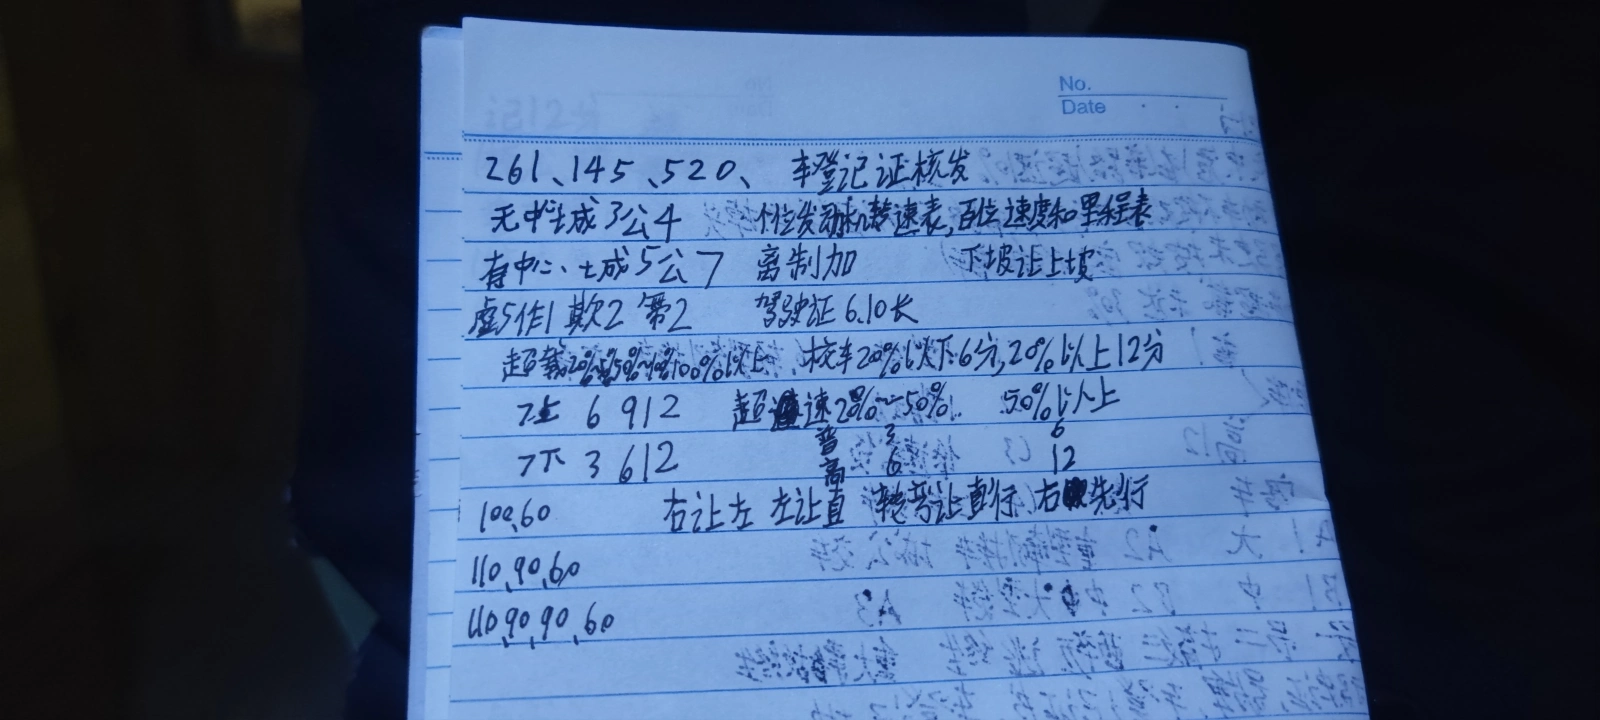 No.
Date
261、145、520、 车登记证核发
无中心 土成3公4 个位发动机转速表,百位速度和里程表
有中心、土成5公7 离制加 下坡让上坡
虚5作1欺2第2 驾驶证6.10长
超载20% 50% 100%以上 校车20%以下6分,20%以上12分
7上 6 9 12 超速20%~50% 50%以上
普 3 6
7下 3 6 12
高 6 12
100,60 右让左 左让直 转弯让直行 右先行
110,90,60
110,90,90,60